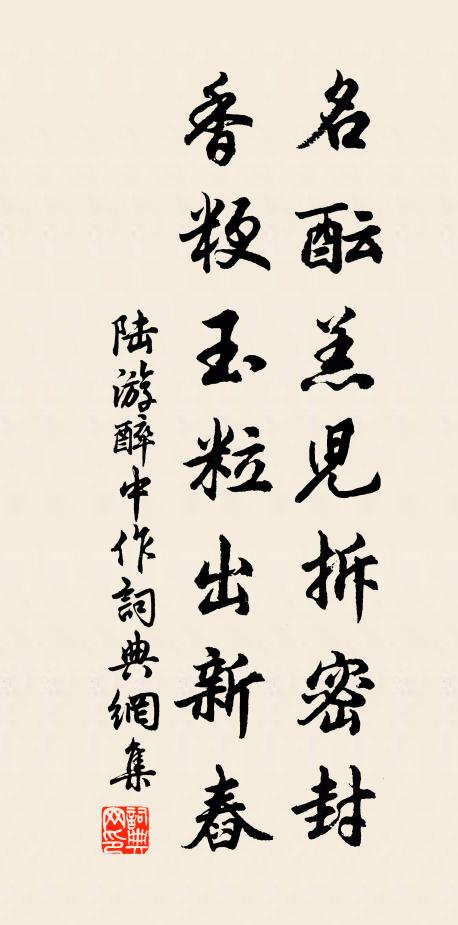 名酝羔児拆密封
香粳玉粒出新舂
陆游醉中作詞典網集
詞典網印